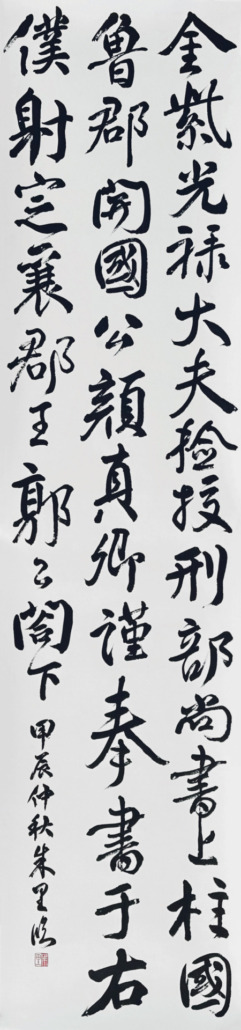 金紫光禄大夫捡挍刑部尚書上柱國
魯郡開國公顔真卿謹奉書于右
僕射定襄郡王郭公閤下
甲辰仲秋朱里臨